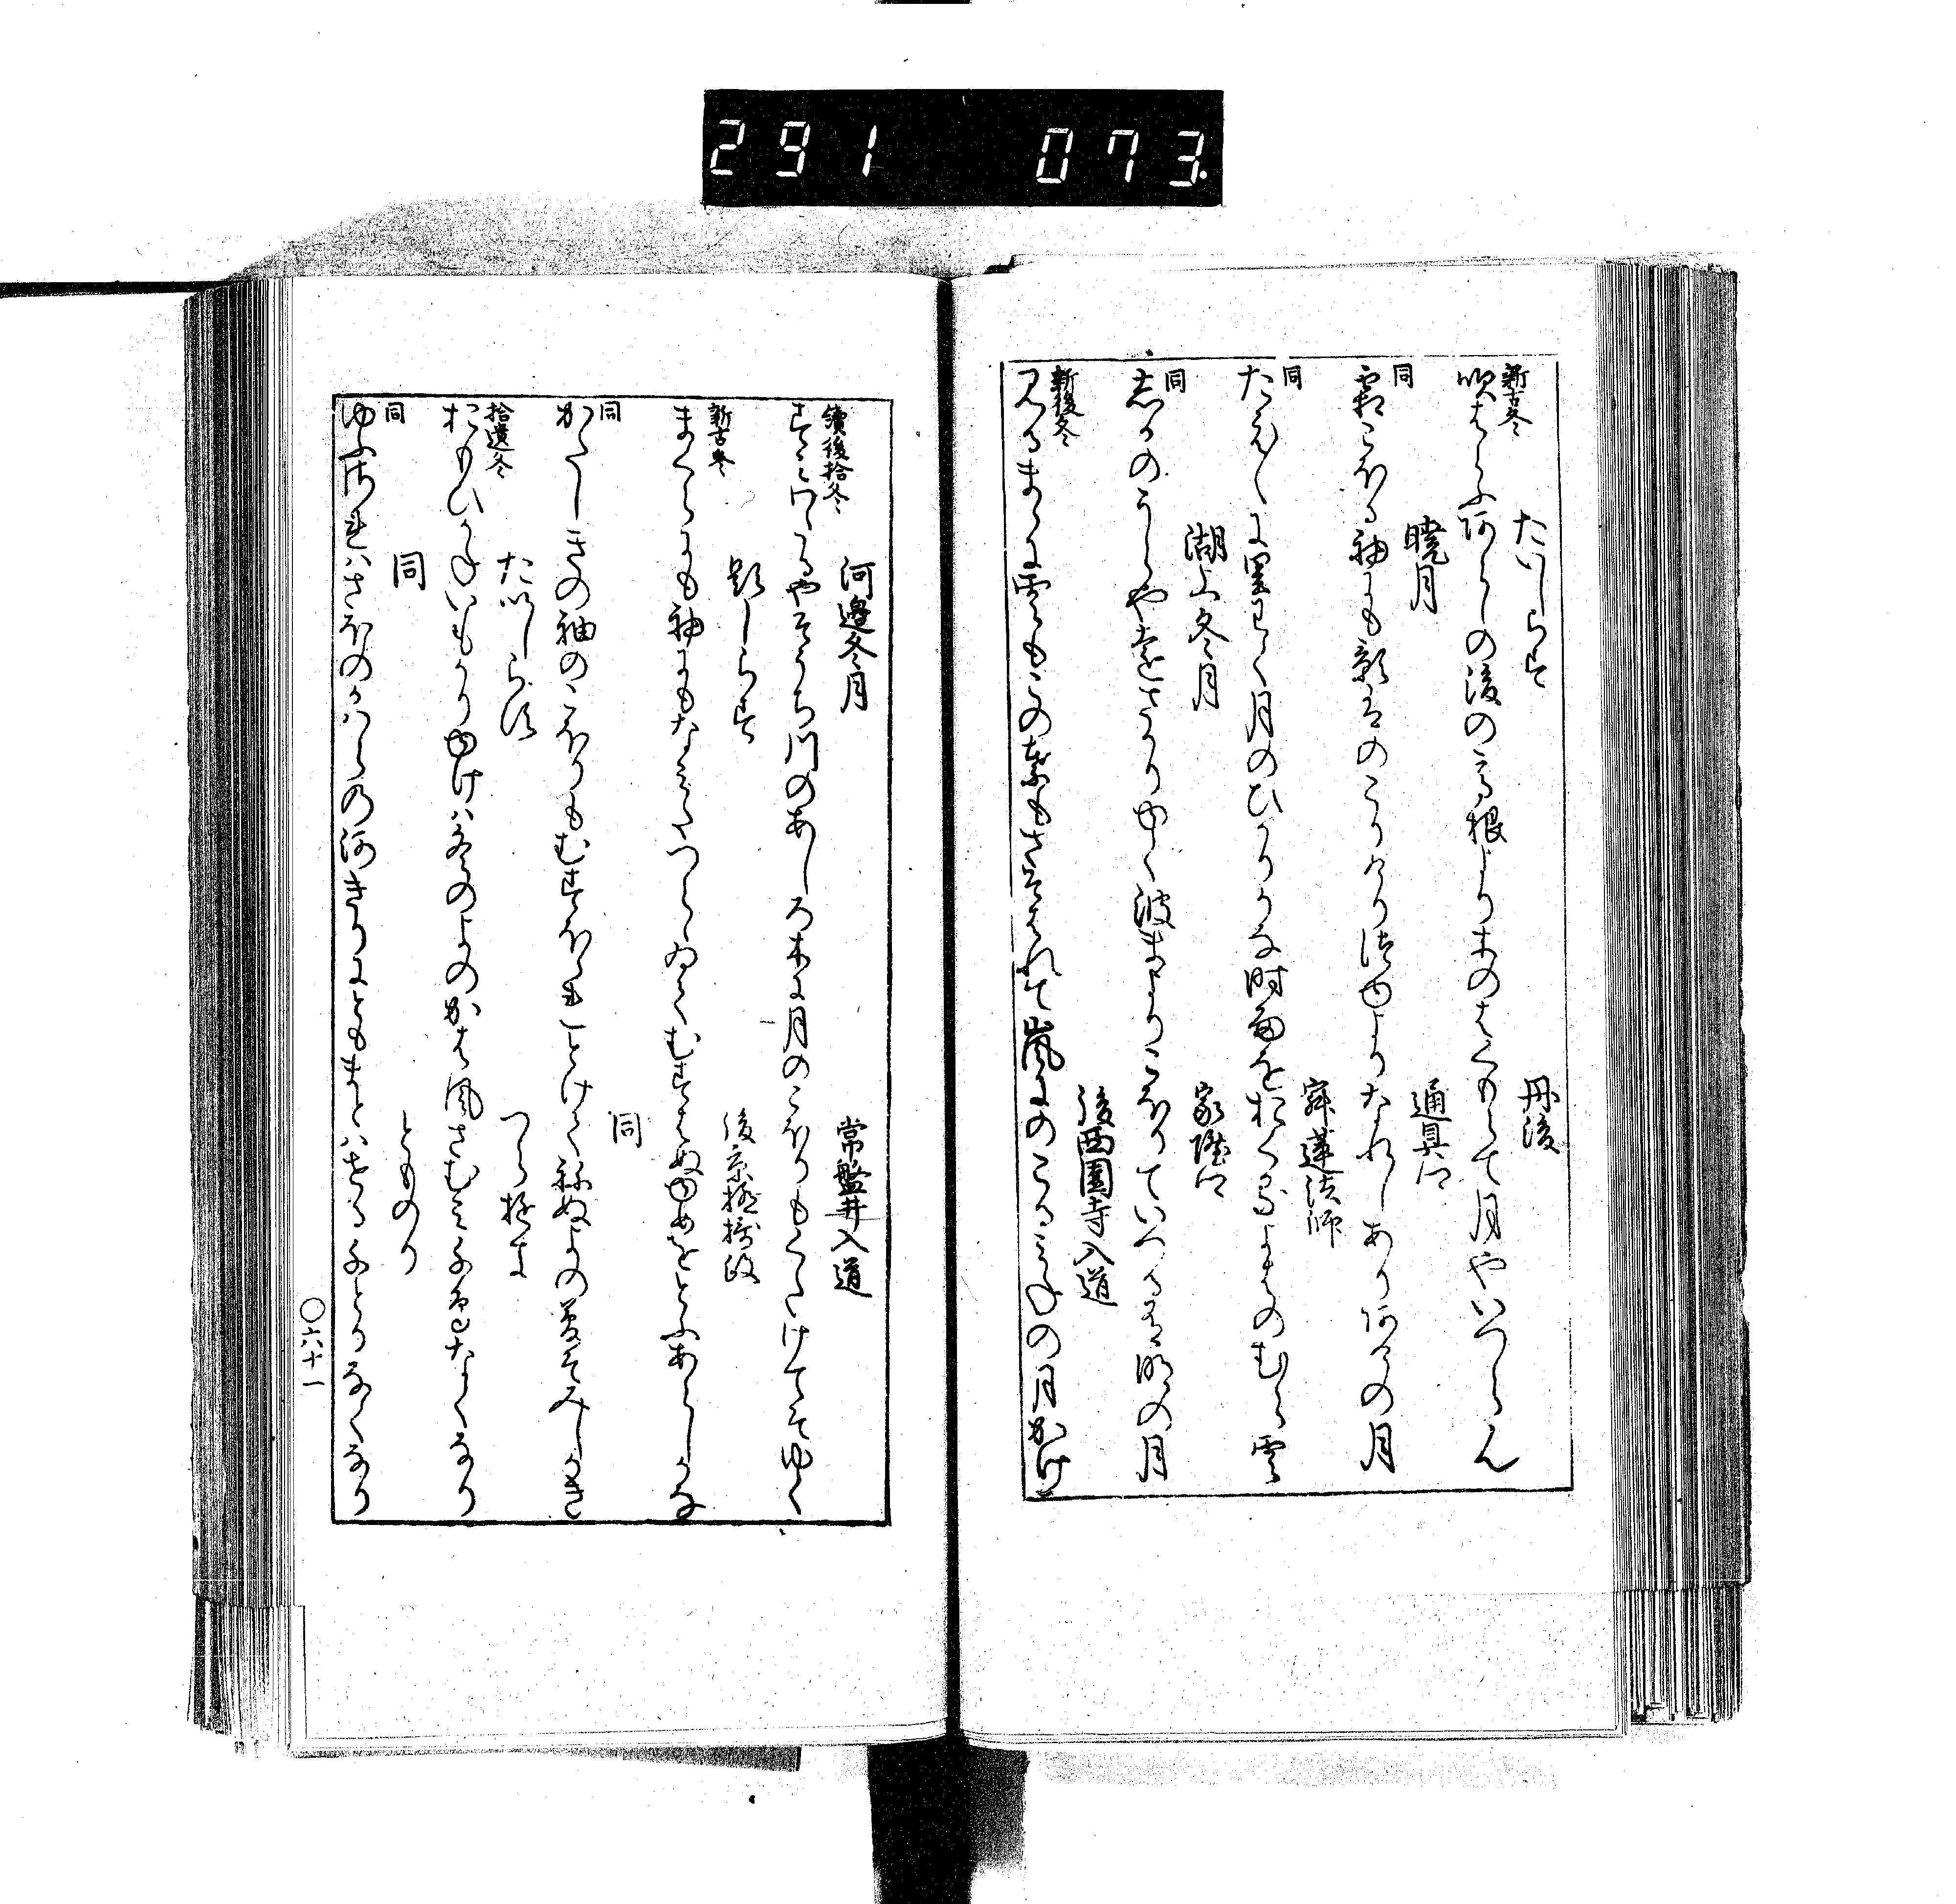 291 073.
たいしらす 丹後
新古冬
吹はらふあらしの後の高根より木のはくもらて月やいつらん
暁月 通具卿
同
霜こほる袖にも影はのこりけり露よりなれしあり明の月
寂蓮法師
同
たえ〳〵に里わく月のひかりかな時雨をおくるよはのむら雲
湖上冬月 家隆卿
同
志かのうらや遠さかりゆく波まよりこほりていつる有明の月
後西園寺入道
新後冬
みるまゝに雲もこの葉もさそはれて嵐にのこるみねの月かけ
河邊冬月 常盤井入道
續後拾冬
やそうち川のあしろ木に月のこほりもくたけてそゆく
題しらす 後京極摂政
新古冬
まくらにも袖にもなみたつらゝゐてむすはぬゆめをとふあらしかな
同
同
かたしきの袖のこほりもむすほゝれとけてねぬよの夢そみしかき
たいしらす つらゆき
拾遺冬
おもひかねいもかりゆけは冬のよのかは風さむみ千鳥なくなり
同 とものり
同
ゆふされはさほのかはらの河きりにともまとはせる千とりなくなり
〇六十一